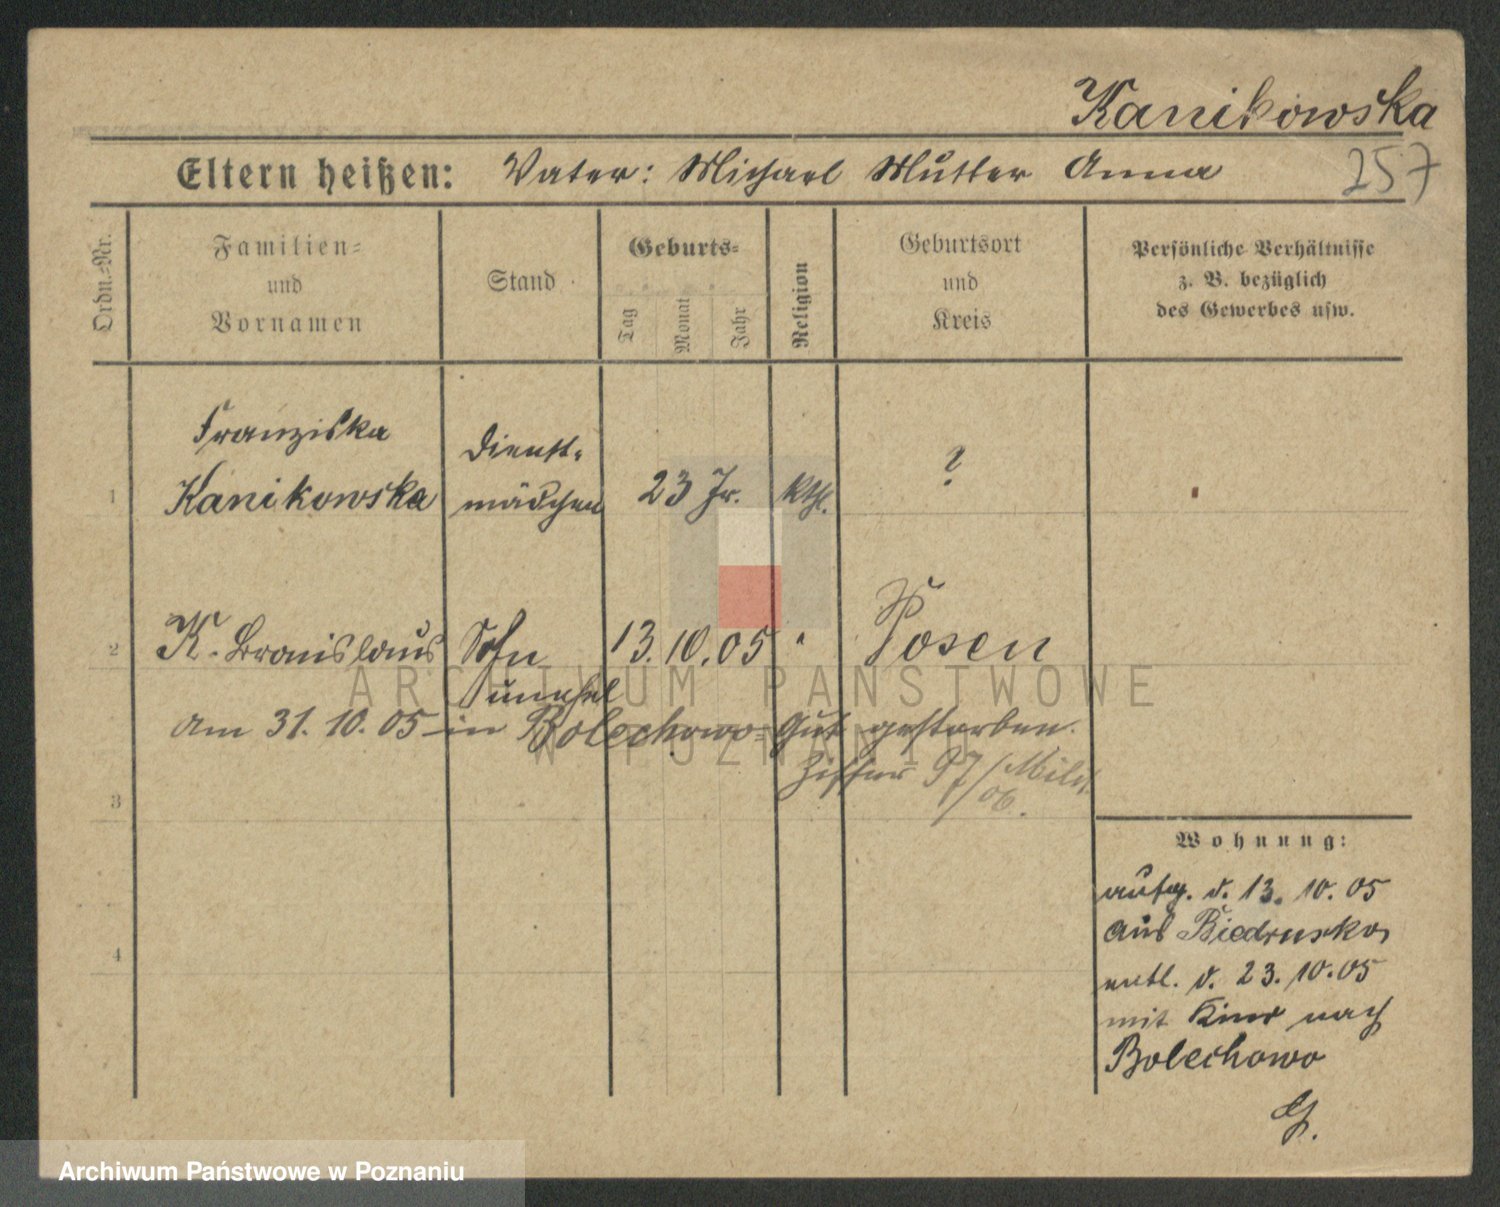 Kanikowska
Eltern heißen: Vater: Michael Mutter Anna
257
Ordn.-Nr.
Familien-
und
Vornamen
Stand
Geburts-
Tag
Monat
Jahr
Religion
Geburtsort
und
Kreis
Persönliche Verhältnisse
z. B. bezüglich
des Gewerbes usw.
1
Franziska
Kanikowska
Dienst-
mädchen
23 Jr.
kth.
?
2
K. Bronislaus
Sohn
unehel
13. 10. 05
"
Posen
am 31. 10. 05 in Bolechowo-Gut gestorben.
Ziffer 97/
06.
3
4
Wohnung:
aufg. d. 13. 10. 05
aus Biedrusko,
entl. d. 23. 10. 05
mit Kind nach
Bolechowo
ARCHIWUM PAŃSTWOWE
W POZNANIU
Archiwum Państwowe w Poznaniu